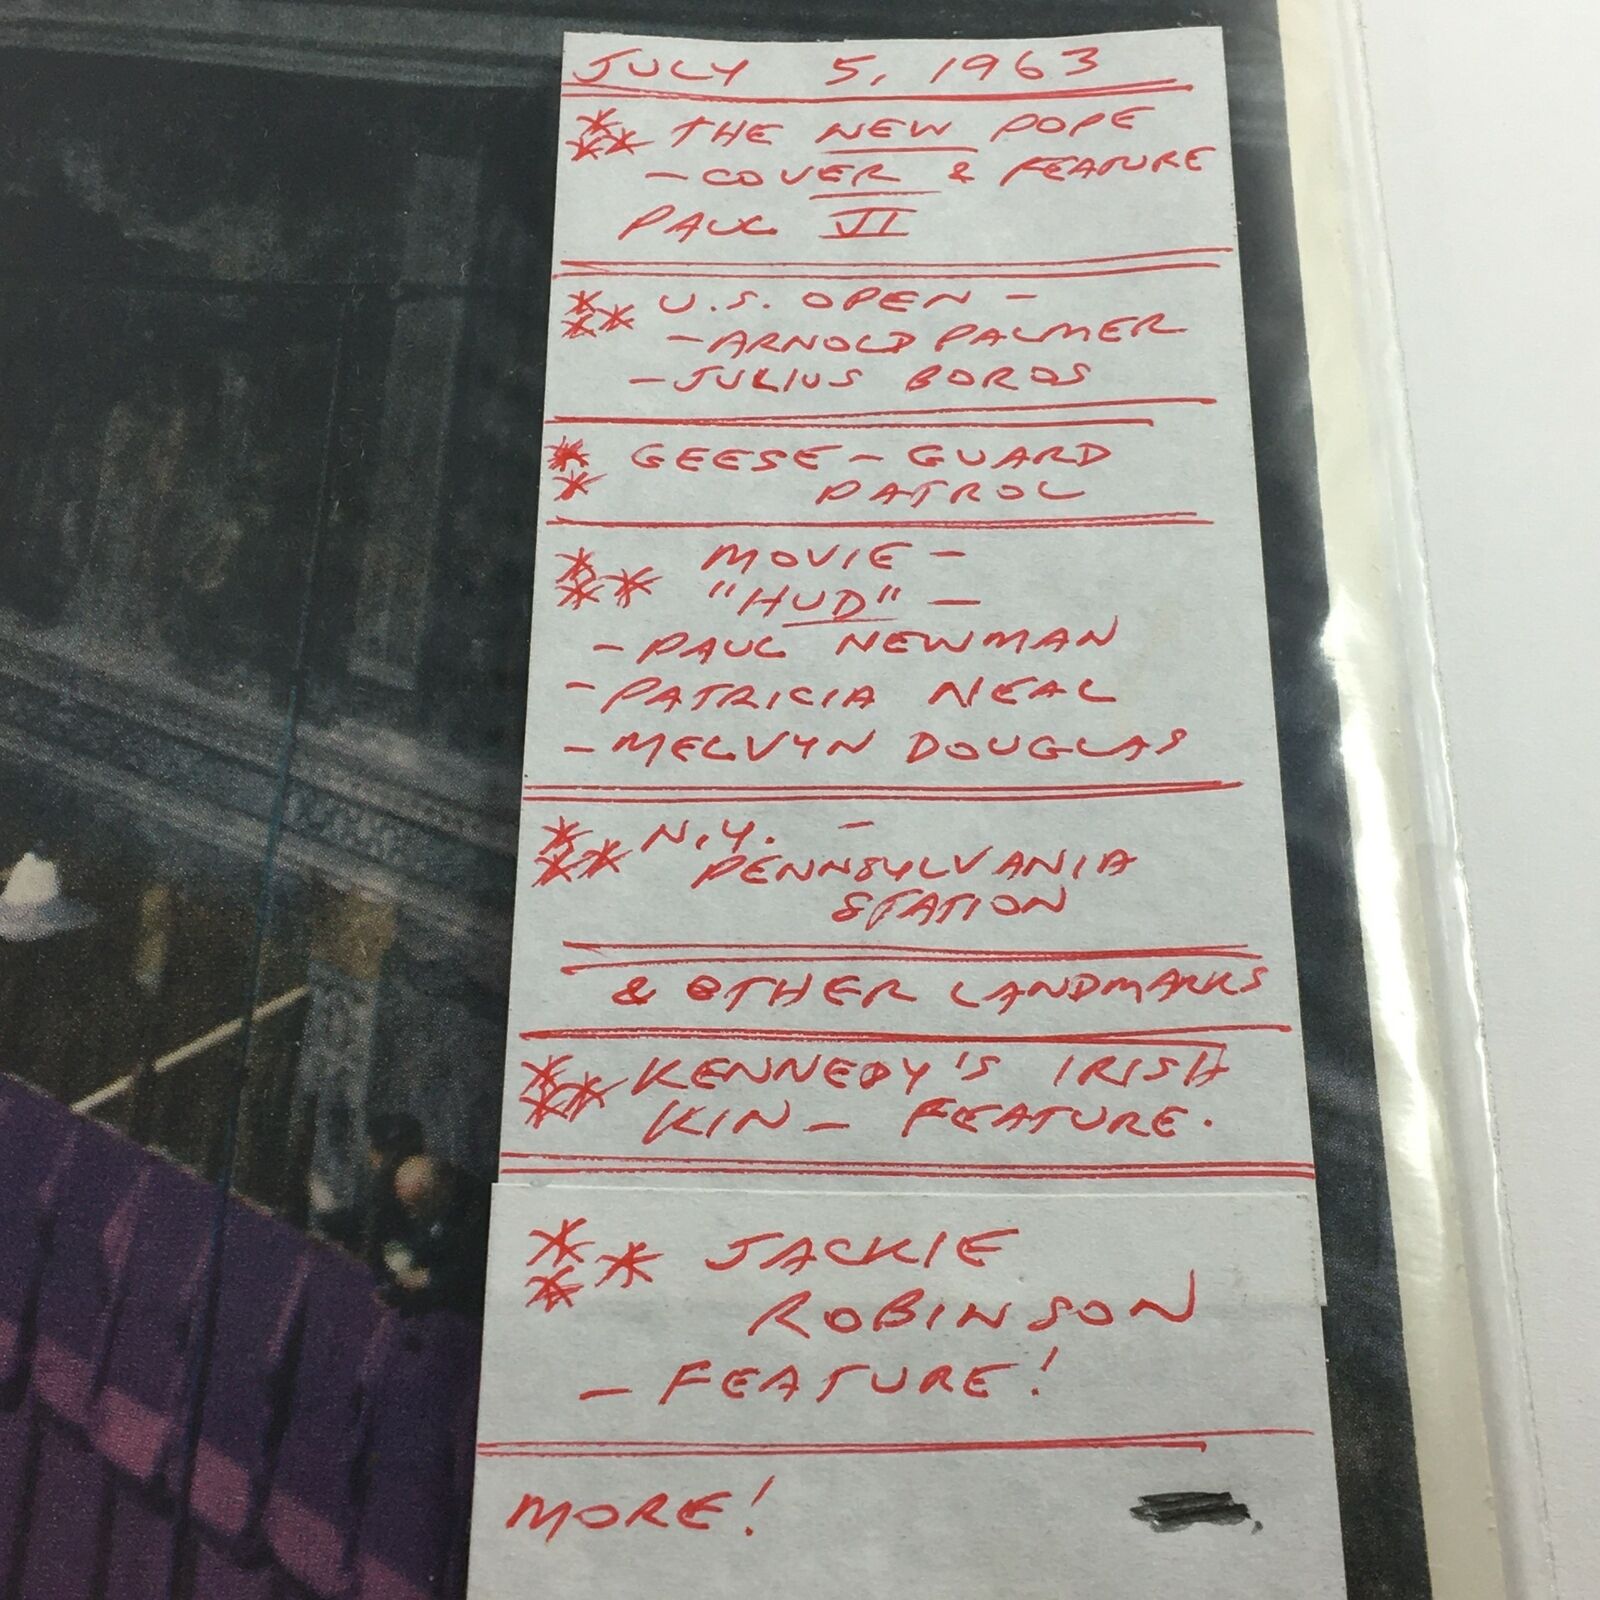 JULY 5, 1963
*** THE NEW POPE
- COVER & FEATURE
PAUL VI
*** U.S. OPEN -
- ARNOLD PALMER
- JULIUS BOROS
** GEESE - GUARD
PATROL
*** MOVIE -
"HUD" -
- PAUL NEWMAN
- PATRICIA NEAL
- MELVYN DOUGLAS
*** N.Y. -
PENNSYLVANIA
STATION
& OTHER LANDMARKS
*** KENNEDY'S IRISH
KIN - FEATURE.
*** JACKIE
ROBINSON
- FEATURE!
MORE!